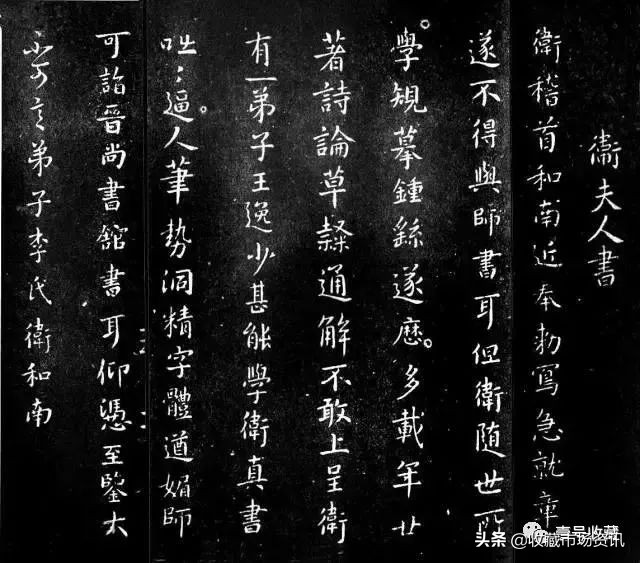 衛夫人書
衛稽首和南近奉勑寫急就章
遂不得與師書耳但衛隨世所
學規摹鍾繇遂歷多載年廿
著詩論草隸通解不敢上呈衛
有一弟子王逸少甚能學衛真書
咄〻逼人筆勢洞精字體遒媚師
可詣晉尚書館書耳仰憑至鑒大
不可言弟子李氏衛和南
壹号收藏
头条 @收藏市场资讯